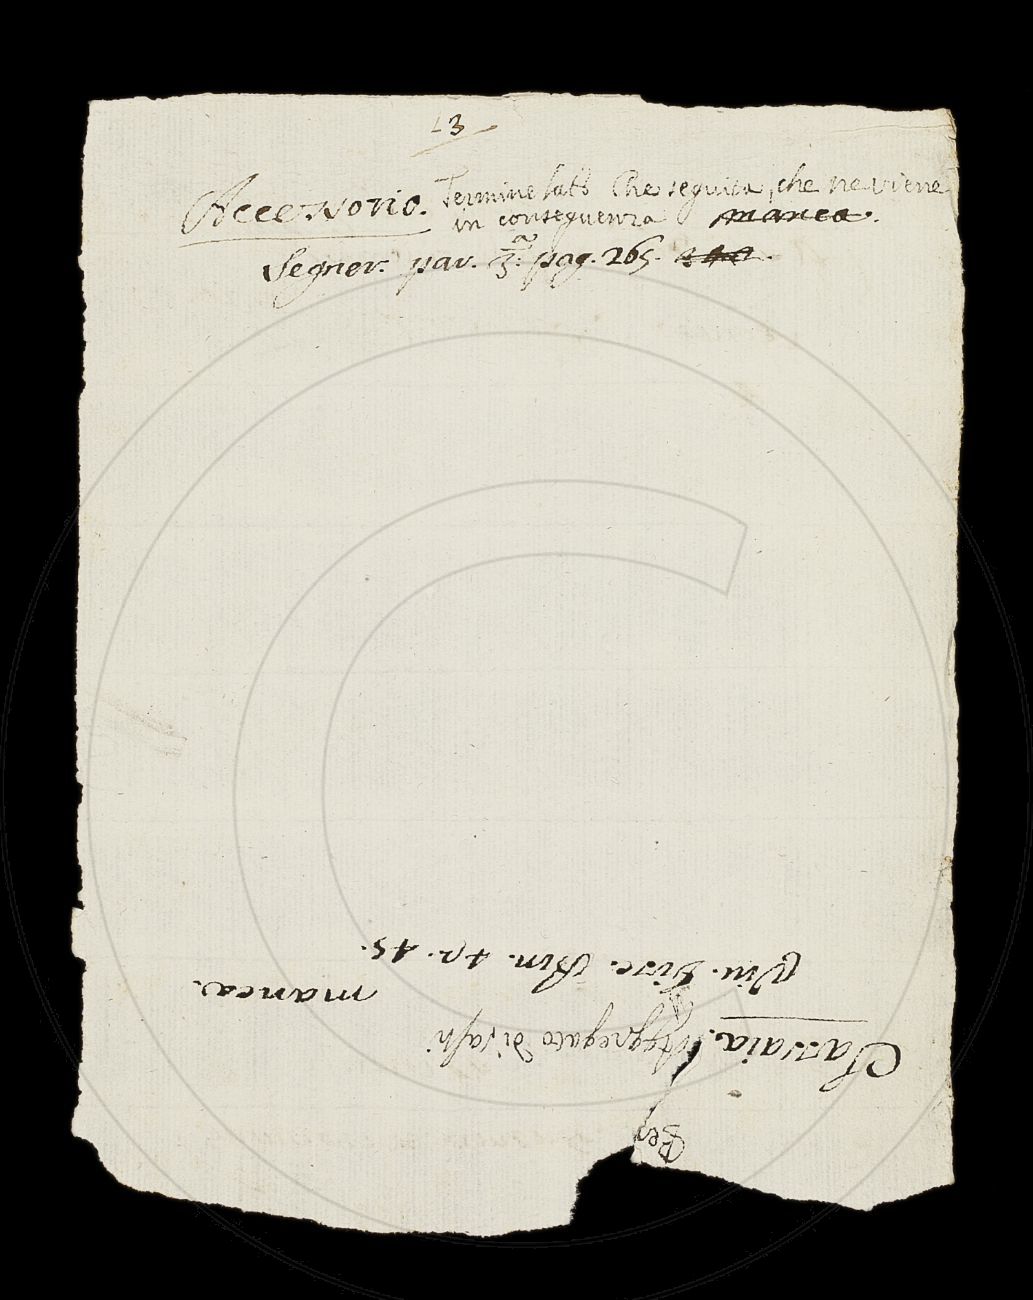 13
Accessorio. Termine lato Che seguita, che ne viene
in conseguenza manca.
Segner. par. 3.a pag. 265.
Sassaia. Aggregato di sassi
manca.
Viv. Disc. Arn. 45.